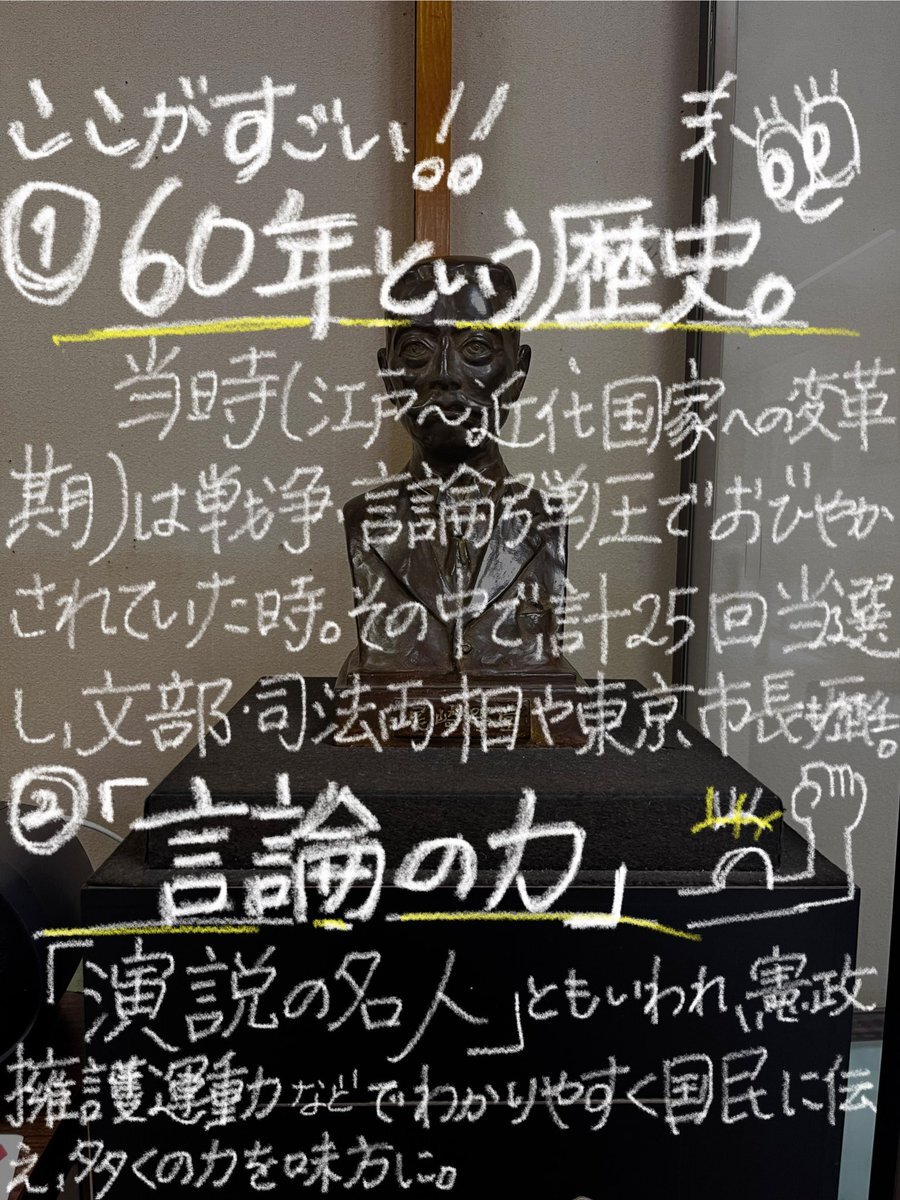 ここがすごい!!
① 60年という歴史。
当時(江戸〜近代国家への変革
期)は戦争、言論弾圧でおびやか
されていた時。その中で計25回当選
し、文部・司法両相や東京市長歴任。
②「言論の力」
「演説の名人」ともいわれ、憲政
擁護運動などでわかりやすく国民に伝
え、多くの力を味方に。